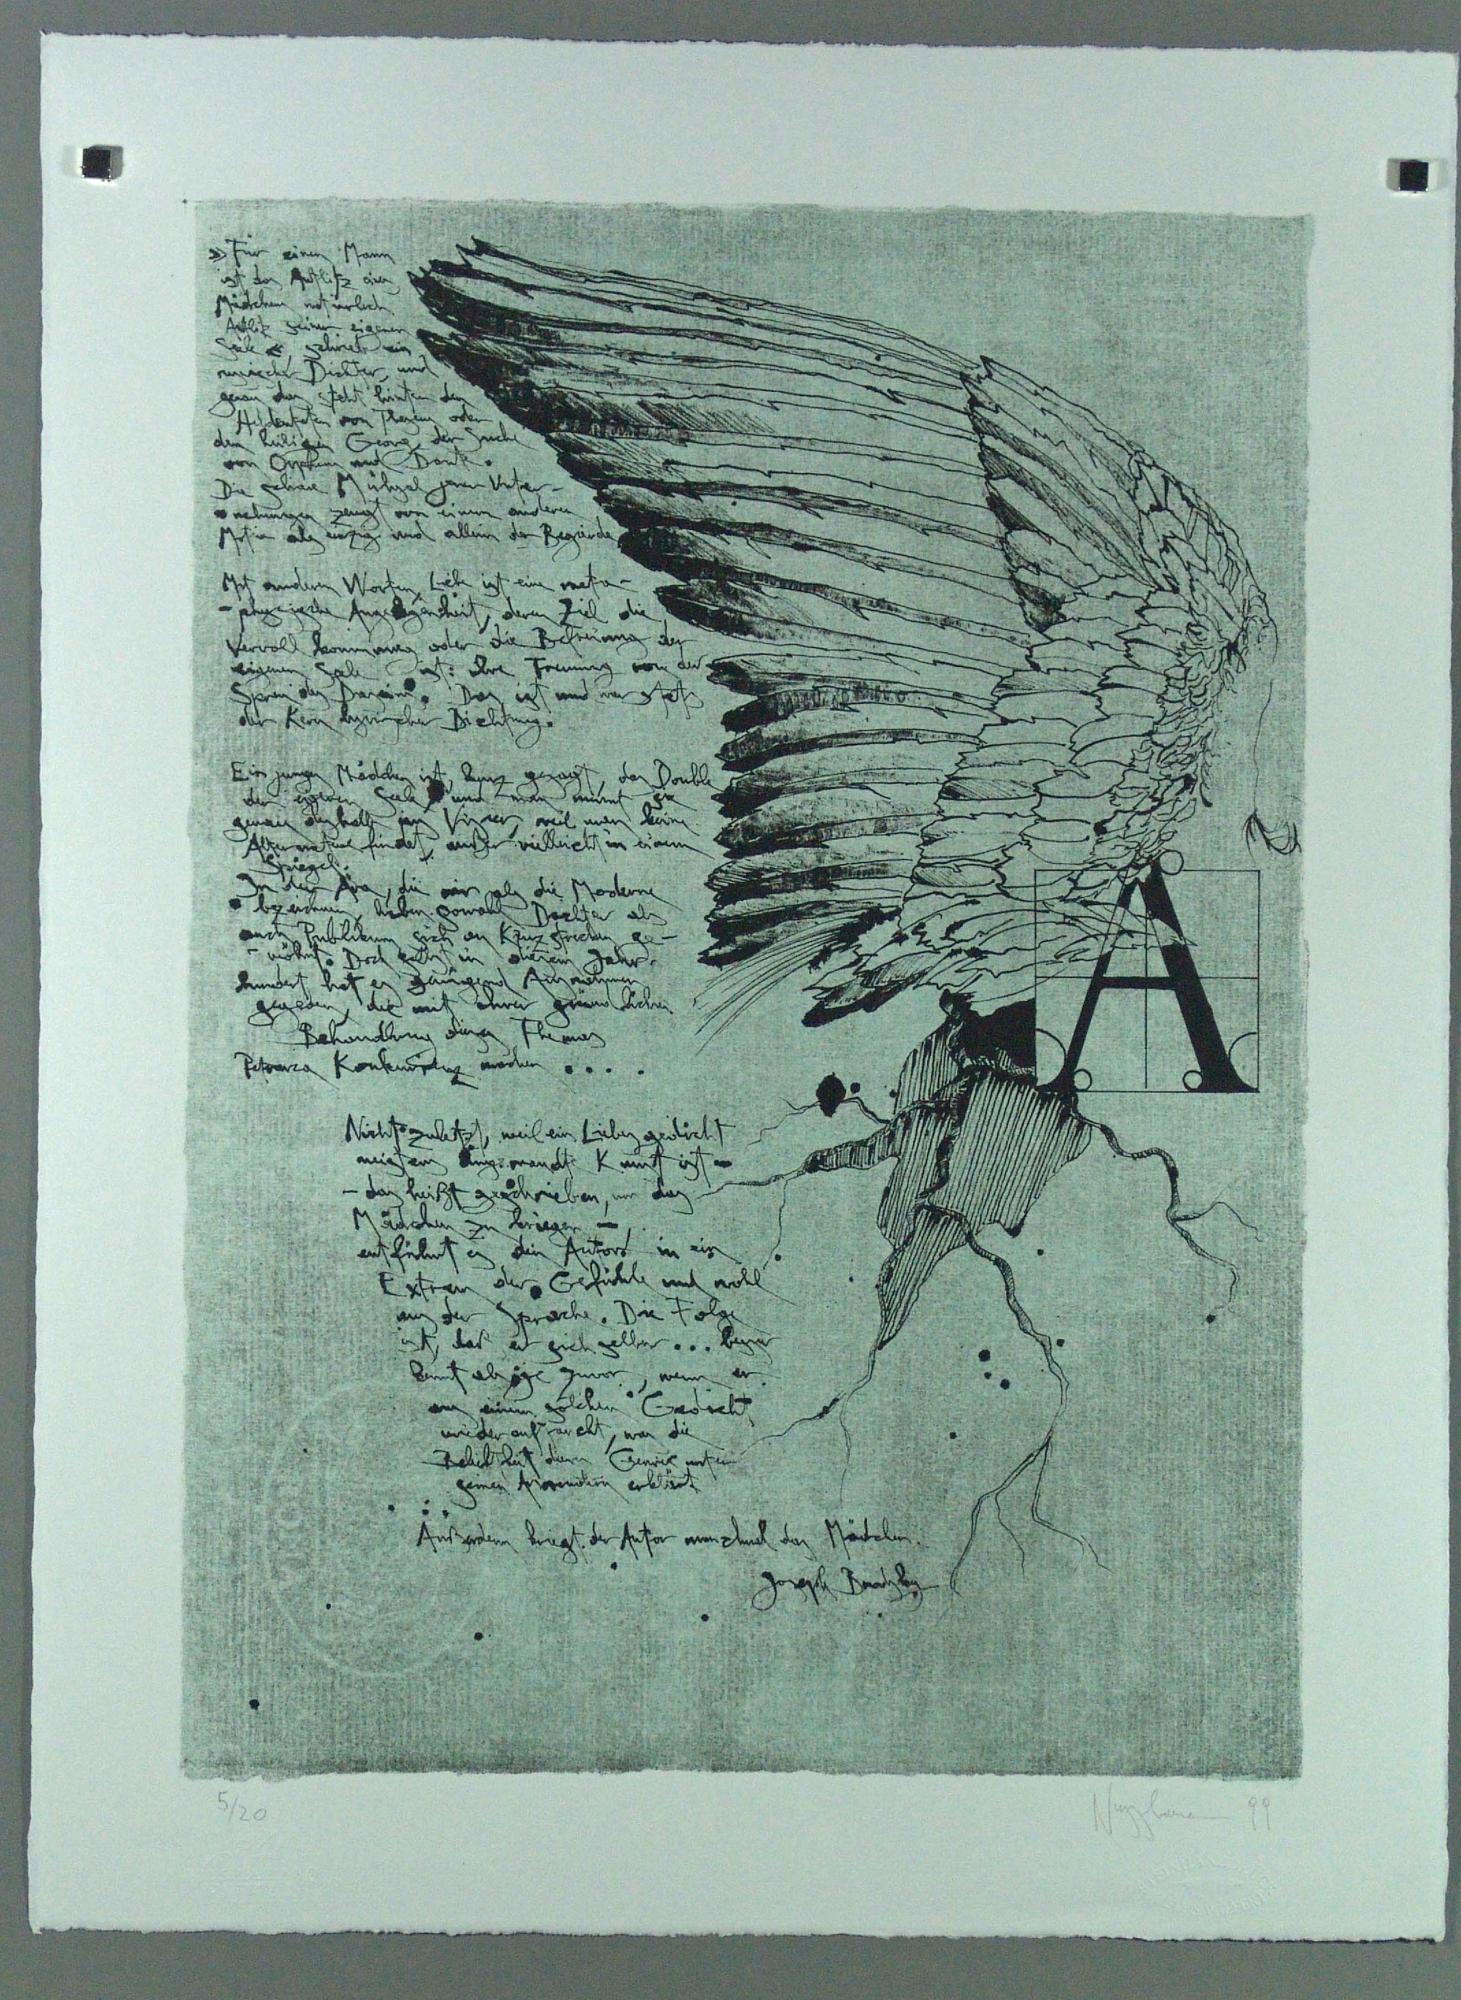 » Für einen Mann
ist das Antlitz eines
Mädchens natürlich
Antlitz seiner eigenen
Seele «, schrieb ein
russischer Dichter, und
genau das steht hinter den
Heldentaten von Theseus oder
dem heiligen Georg, der Suche
von Orpheus und Dante.
Die schiere Mühsal jener Unter-
nehmungen zeugt von einem anderen
Motiv als einzig und allein der Begierde.
Mit anderen Worten, Liebe ist eine meta-
-physische Angelegenheit, deren Ziel die
Vervollkommnung oder die Befreiung der
eigenen Seele ist: ihre Trennung von der
Spreu des Daseins. Das ist und war stets
der Kern lyrischer Dichtung.
Ein junges Mädchen ist, kurz gesagt, das Double
der eigenen Seele, und man nimmt sie
genau deshalb ins Visier, weil man keine
Alternative findet, außer vielleicht in einem
Spiegel.
In der Ära, die wir als die Moderne
bezeichnen, haben sowohl Dichter als
auch Publikum sich an Kürze ge-
-wöhnt. Doch selbst in diesem Jahr-
hundert hat es genügend Ausnahmen
gegeben, die mit ihrer gründlichen
Behandlung dieses Themas
Petrarca Konkurrenz machen ....
Nicht zuletzt, weil ein Liebesgedicht
meistens angewandte Kunst ist -
- das heißt geschrieben, um das
Mädchen zu kriegen -,
entführt es den Autor in ein
Extrem der Gefühle und wohl
auch der Sprache. Die Folge
ist, daß er sich selber ... besser
kennt als je zuvor, wenn er
aus einem solchen Gedicht
wieder auftaucht, was die
Beliebtheit dieses Genres unter
seinen Anwendern erklärt.
Außerdem kriegt der Autor manchmal das Mädchen.
Joseph Brodsky
A
5/20
99